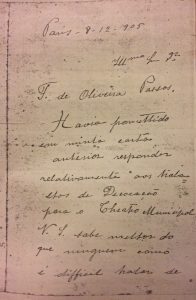 Paris - 8-12-905
Illmo Sr
F. de Oliveira Passos.
Havia promettido
em minha carta
anterior responder
relativamente aos
de Decoração
para o Theatro Municipal
V. S. sabe melhor do
que ninguem como
é difficil tratar de